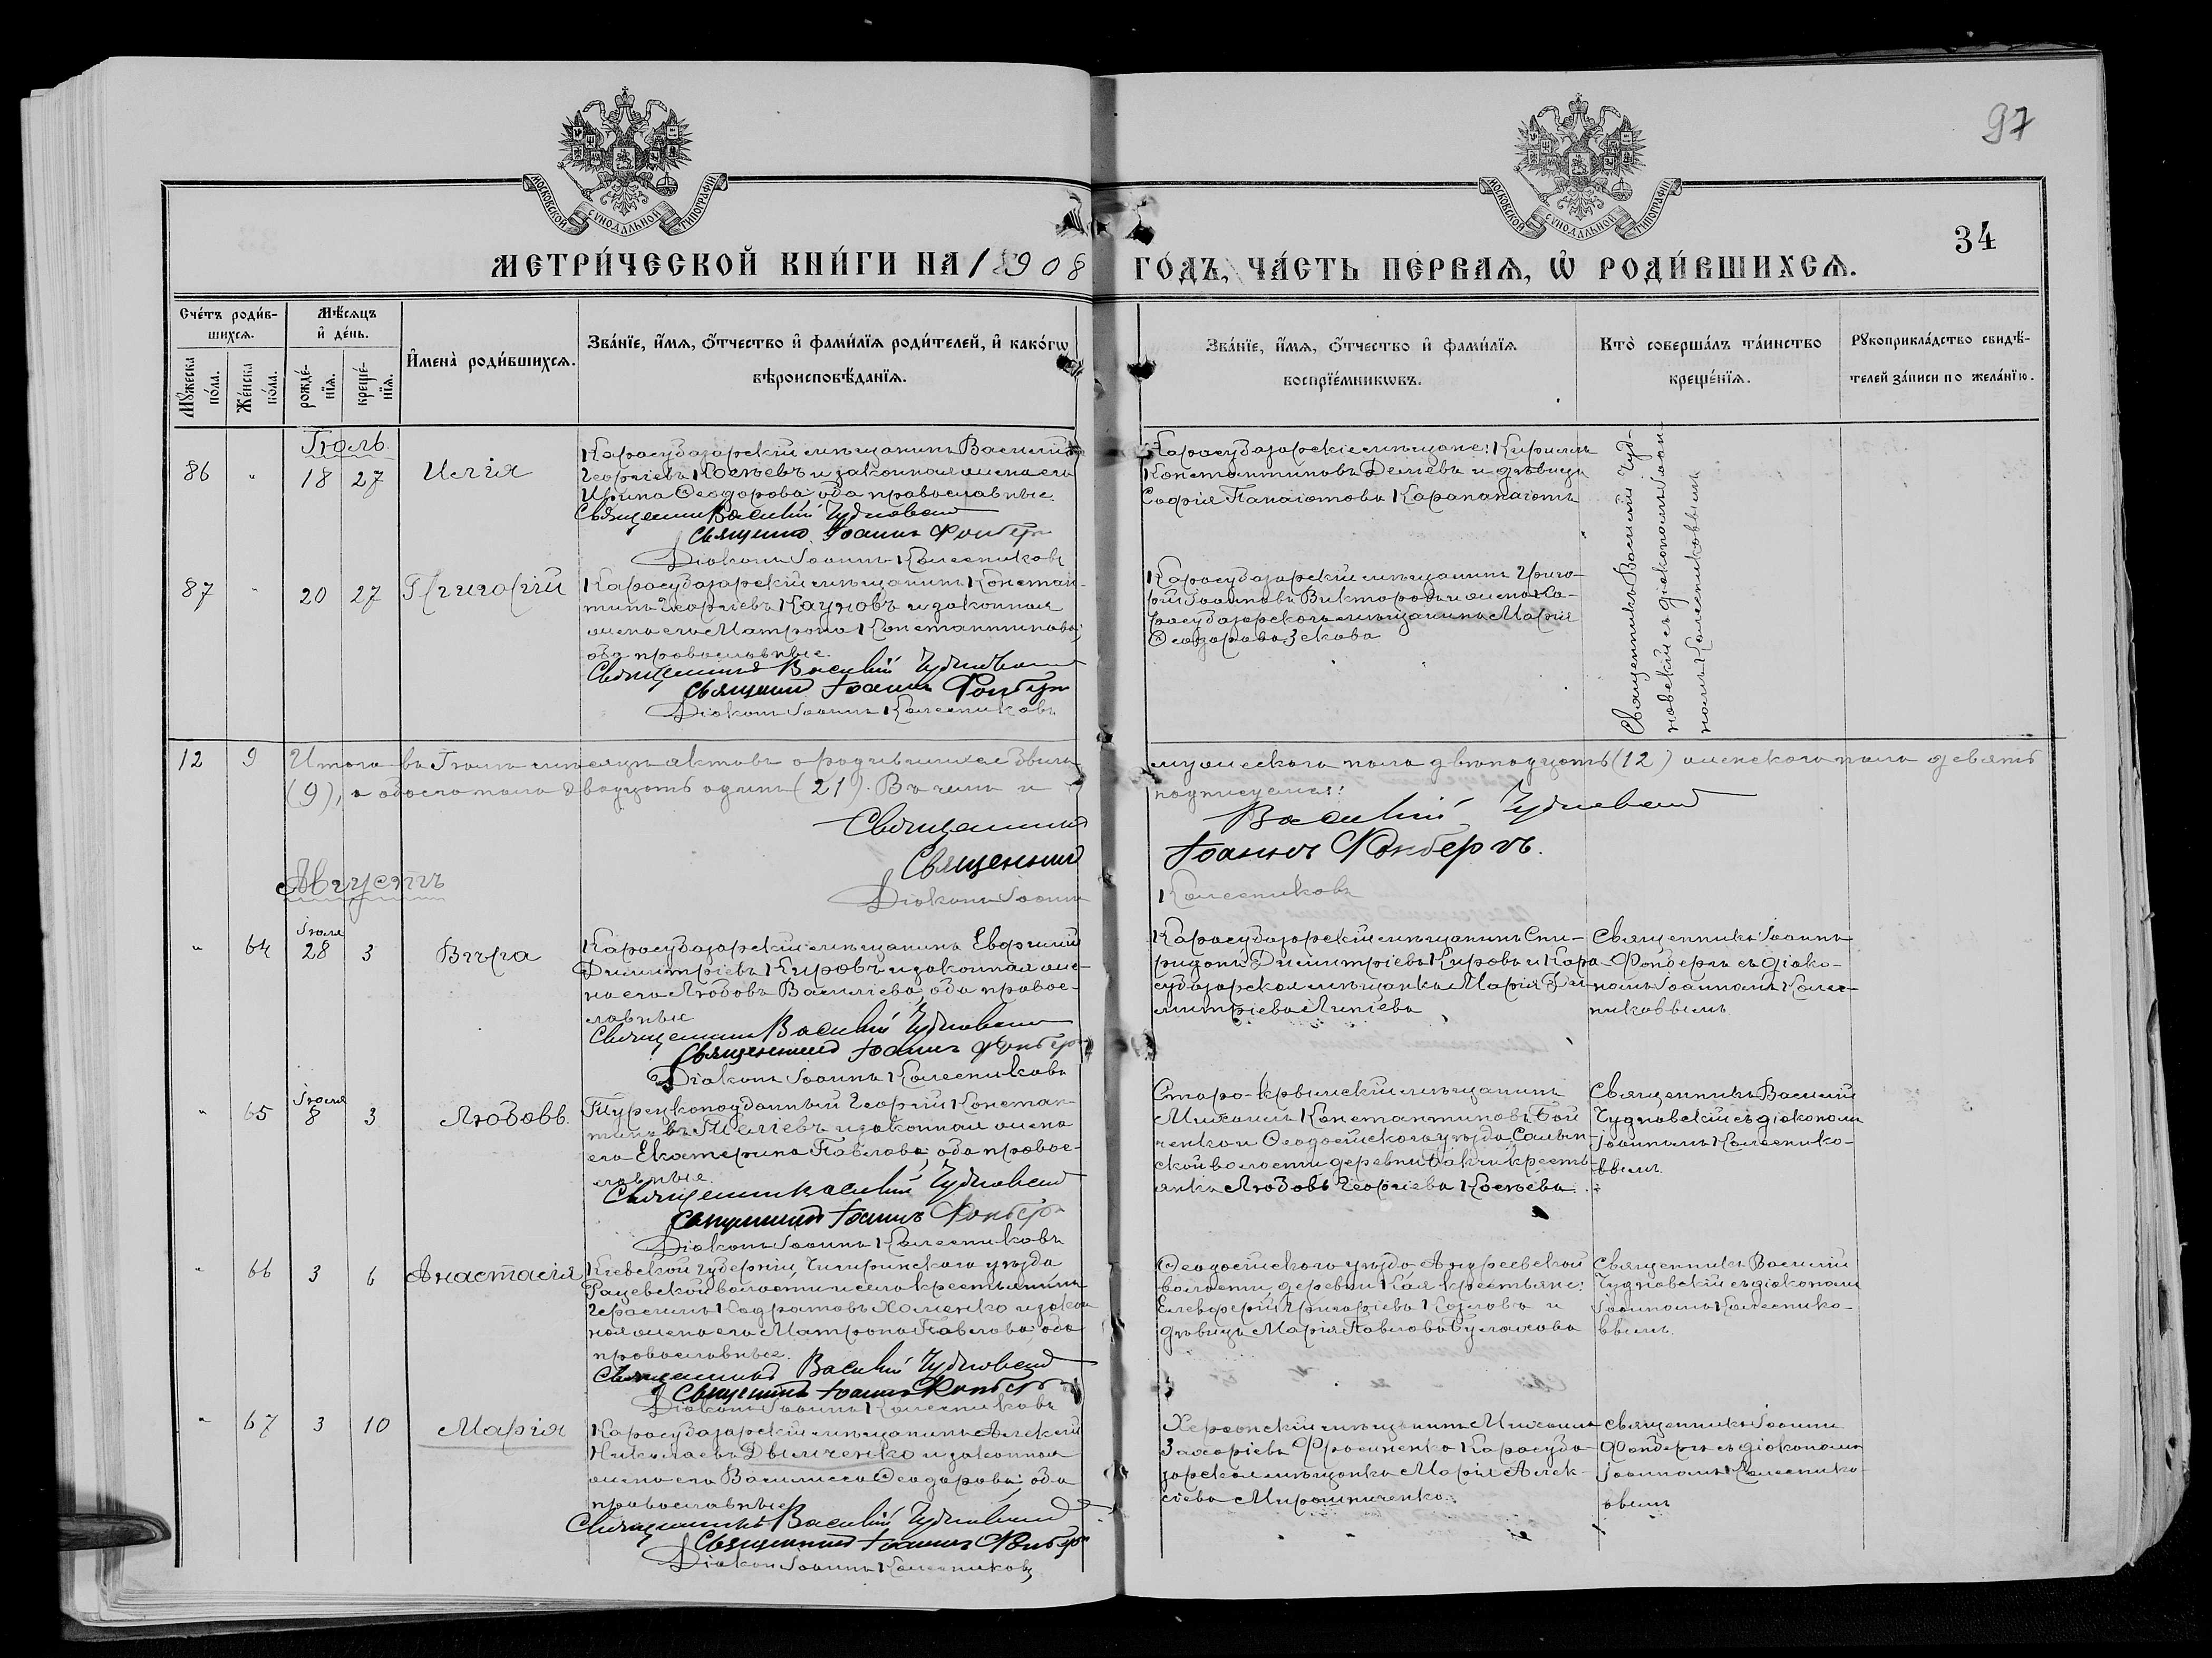 97
МОСКОВСКОЙ СѴНОДАЛЬНОЙ ТИПОГРАФІИ
МОСКОВСКОЙ СѴНОДАЛЬНОЙ ТИПОГРАФІИ
34
МЕТРИ́ЧЕСКОЙ КНИ́ГИ НА 1908 ГО́ДЪ, ЧА́СТЬ ПЕ́РВАѦ, Ѡ҆ РОДИ́ВШИХСѦ.
Сче́тъ роди́в-
шихсѧ.
Мꙋ́жеска по́ла.
Же́нска по́ла.
Мѣ́сѧцъ
и҆ де́нь.
рожде́-
нїѧ.
креще́-
нїѧ.
И҆мена̀ роди́вшихсѧ.
Зва́нїе, и҆́мѧ, ѻ҆́тчество и҆ фами́лїѧ роди́телей, и҆ како́гѡ
вѣроисповѣ́данїѧ.
Зва́нїе, и҆́мѧ, ѻ҆́тчество и҆ фами́лїѧ
воспрїе́мникѡвъ.
Кто̀ соверша́лъ та́инство
креще́нїѧ.
Рꙋкоприкла́дство свидѣ́-
телей за́писи по жела́нїю.
Іюль.
86 " 18 27 Илія
Карасубазарскій мѣщанинъ Василій
Георгіевъ Косѣевъ и законная жена его
Ирина Ѳеодорова, оба православные.
Священникъ Василій Чудновскій
Священникъ Іоаннъ Фонберъ
Діаконъ Іоаннъ Колесниковъ
Карасубазарскіе мѣщане: Кириллъ
Константиновъ Деліевъ и дѣвица
Софія Панаіотова Карапанаіотъ
Священникъ Василій Чуд-
новскій съ діакономъ Іоан-
номъ Колесниковымъ
87 " 20 27 Григорій
Карасубазарскій мѣщанинъ Констан-
тинъ Георгіевъ Кауновъ и законная
жена его Матрона Константинова,
оба православные.
Священникъ Василій Чудновскій
Священникъ Іоаннъ Фонберъ
Діаконъ Іоаннъ Колесниковъ
Карасубазарскій мѣщанинъ Григо-
рій Іоанновъ Викторовъ и жена Ка-
расубазарскаго мѣщанина Марія
Ѳеодорова Зекова
12 9 Итого въ Іюлѣ мѣсяцѣ актовъ о родившихся было мужескаго пола двѣнадцать (12) женскаго пола девять
(9), а обоего пола двадцать одинъ (21). Въ чемъ и подписуемся:
Священникъ Василій Чудновскій
Священникъ Іоаннъ Фонберъ.
Діаконъ Іоаннъ Колесниковъ
Августъ
" 64 Іюля 28 3 Вѣра
Карасубазарскій мѣщанинъ Евфимій
Димитріевъ Кировъ и законная же-
на его Любовь Василіева, оба правос-
лавные
Священникъ Василій Чудновскій
Священникъ Іоаннъ Фонберъ
Діаконъ Іоаннъ Колесниковъ
Карасубазарскій мѣщанинъ Спи-
ридонъ Димитріевъ Кировъ и Кара-
субазарская мѣщанка Марія Ди-
митріева
Священникъ Іоаннъ
Фонберъ съ діако-
номъ Іоанномъ Колес-
никовымъ
" 65 Іюля 8 3 Любовь.
Турецкоподданный Георгій Констан-
тиновъ Теліевъ и законная жена
его Екатерина Павлова, оба правос-
лавные.
Священникъ Василій Чудновскій
Священникъ Іоаннъ Фонберъ
Діаконъ Іоаннъ Колесниковъ
Старо-Крымскій мѣщанинъ
Михаилъ Константиновъ Бой
ченко и Ѳеодосійскаго уѣзда Салын-
ской волости деревни Бакчи кресть-
янка Любовь Георгіева Косѣева
Священникъ Василій
Чудновскій съ діакономъ
Іоанномъ Колеснико-
вымъ
" 66 3 6 Анастасія
Кіевской губерніи, Чигиринскаго уѣзда
Рацевской волости и села крестьянинъ
Герасимъ Кодратовъ Хоменко и закон
ная жена его Матрона Павлова, оба
православные.
Священникъ Василій Чудновскій
Священникъ Іоаннъ Фонберъ
Діаконъ Іоаннъ Колесниковъ
Ѳеодосійскаго уѣзда Андреевской
волости, деревни Кая крестьяне:
Елевферій Григоріевъ Козловъ и
дѣвица Марія Павлова Булахова
Священникъ Василій
Чудновскій съ діакономъ
Іоанномъ Колеснико-
вымъ.
" 67 3 10 Марія
Карасубазарскій мѣщанинъ Алексій
Николаевъ Дымченко и законная
жена его Василисса Ѳеодорова, оба
православные
Священникъ Василій Чудновскій
Священникъ Іоаннъ Фонберъ
Діаконъ Іоаннъ Колесниковъ
Херсонскій мѣщанинъ Михаилъ
Захаріевъ Фросиненко Карасуба-
зарская мѣщанка Марія Алек-
сіева Мирошниченко.
Священникъ Іоаннъ
Фонберъ съ діакономъ
Іоанномъ Колеснико-
вымъ